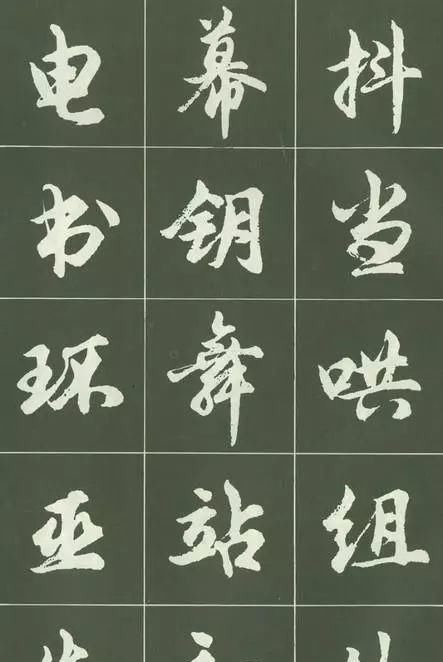 电幕抖
书钥当
环舞哄
亚站组